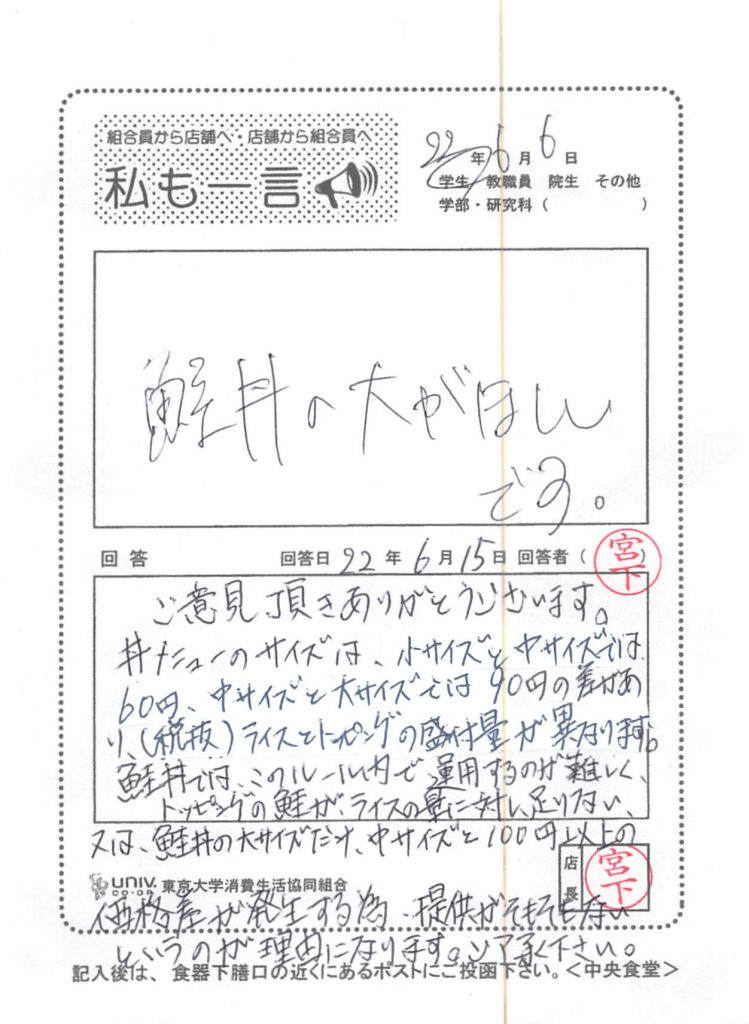 組合員から店舗へ・店舗から組合員へ
私も一言
22年6月6日
学生 教職員 院生 その他
学部・研究科( )
鮭丼の大がほしい
です。
回答 回答日 22年6月15日 回答者(宮下)
ご意見頂きありがとうございます。
丼メニューのサイズは、小サイズと中サイズでは
60円、中サイズと大サイズでは90円の差があ
り、(税抜)ライスとトッピングの盛付量が異なります。
鮭丼では、このルール内で運用するのが難しく、
トッピングの鮭が、ライスの量に対し足りない、
又は、鮭丼の大サイズだけ、中サイズと100円以上の
UNIV. CO-OP 東京大学消費生活協同組合
店長 宮下
価格差が発生する為、提供がそもそもない
というのが理由になります。ご了承下さい。
記入後は、食器下膳口の近くにあるポストにご投函下さい。<中央食堂>